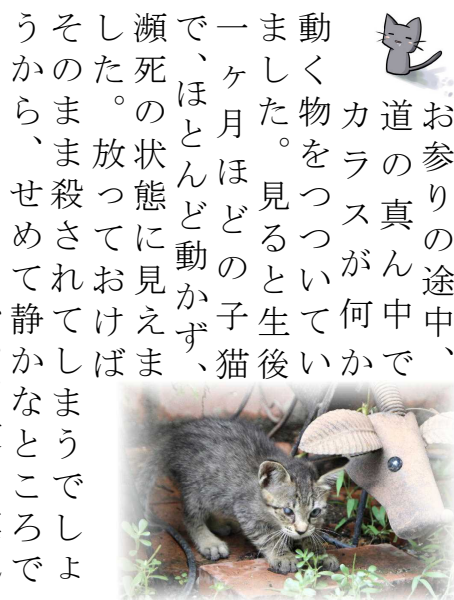 お参りの途中、
道の真ん中で
カラスが何か
動く物をつついてい
ました。見ると生後
一ヶ月ほどの子猫
で、ほとんど動かず、
瀕死の状態に見えま
した。放っておけば
そのまま殺されてしまうでしょ
うから、せめて静かなところで